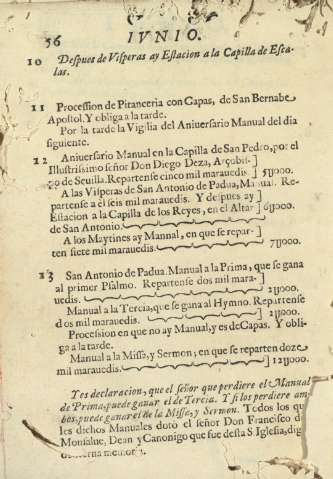 56
IVNIO.
10 Despues de Visperas ay Estacion a la Capilla de Escalas.
11 Procession de Pitanceria con Capas, de San Bernabe
Apostol. Y obliga a la tarde.
Por la tarde la Vigilia del Aniversario Manual del dia
siguiente.
12 Aniversario Manual en la Capilla de San Pedro, por el
Illustrissimo señor Don Diego Deza, Arçobis-
po de Seuilla. Repartense cinco mil marauedis. 5y000.
A las Visperas de San Antonio de Padua, Manual. Re-
partense a él seis mil marauedis. Y despues ay
Estacion a la Capilla de los Reyes, en el Altar 6y000.
de San Antonio.
A los Maytines ay Mannal, en que se repar-
ten siete mil marauedis. 7y000.
13 San Antonio de Padua. Manual a la Prima, que se gana
al primer Psalmo. Repartense dos mil mara-
uedis. 2y000.
Manual a la Tercia, que se gana al Hymno. Repartense
dos mil marauedis. 2y000.
Procession en que no ay Manual, y es de Capas. Y obli-
ga a la tarde.
Manual a la Missa, y Sermon, en que se reparten doze
mil marauedis. 12y000.
Y es declaracion, que el señor que perdiere el Manual
de Prima, puede ganar el de Tercia. Y si los perdiere am-
bos, puede ganar el de la Missa, y Sermon. Todos los qua-
les dichos Manuales dotó el señor Don Francisco de
Monsalue, Dean y Canonigo que fue desta S. Iglesia, dig-
memoria.